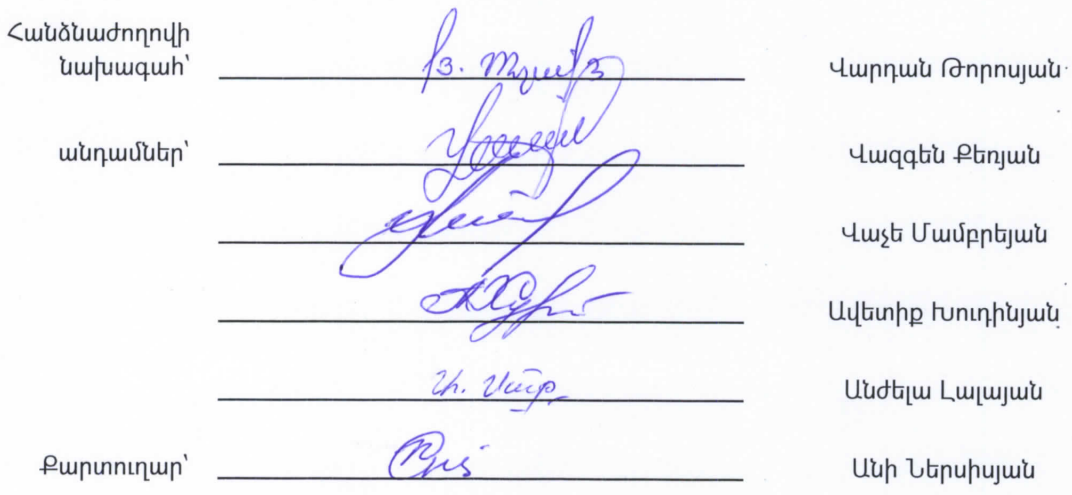 Հանձնաժողովի
նախագահ՝ Վարդան Թորոսյան
անդամներ՝ Վազգեն Քեռյան
Վաչե Մամբրեյան
Ավետիք Խուդինյան
Անժելա Լալայան
Քարտուղար՝ Անի Ներսիսյան